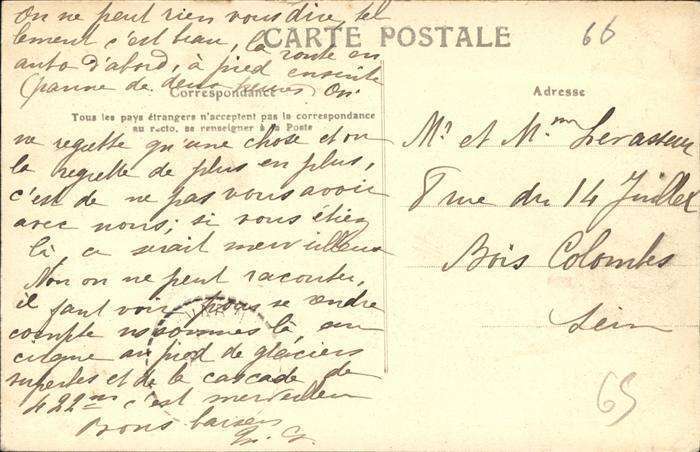 On ne peut rien vous dire, tel
lement c'est beau, la route en
auto d'abord, à pied ensuite
(panne de deux heures) On
CARTE POSTALE
Correspondance
Tous les pays étrangers n'acceptent pas la correspondance
au recto, se renseigner à la Poste
ne regrette qu'une chose et on
la regrette de plus en plus,
c'est de ne pas vous avoir
avec nous; si vous étiez
là ce serait merveilleux
Non on ne peut raconter,
il faut voir pour se rendre
compte ns sommes là au
cirque au pied de glaciers
superbes et de la cascade de
422m c'est merveilleux
Bons baisers
66
Adresse
Mr et Mme Levasseur
8 rue du 14 Juillet
Bois Colombes
Seine
65